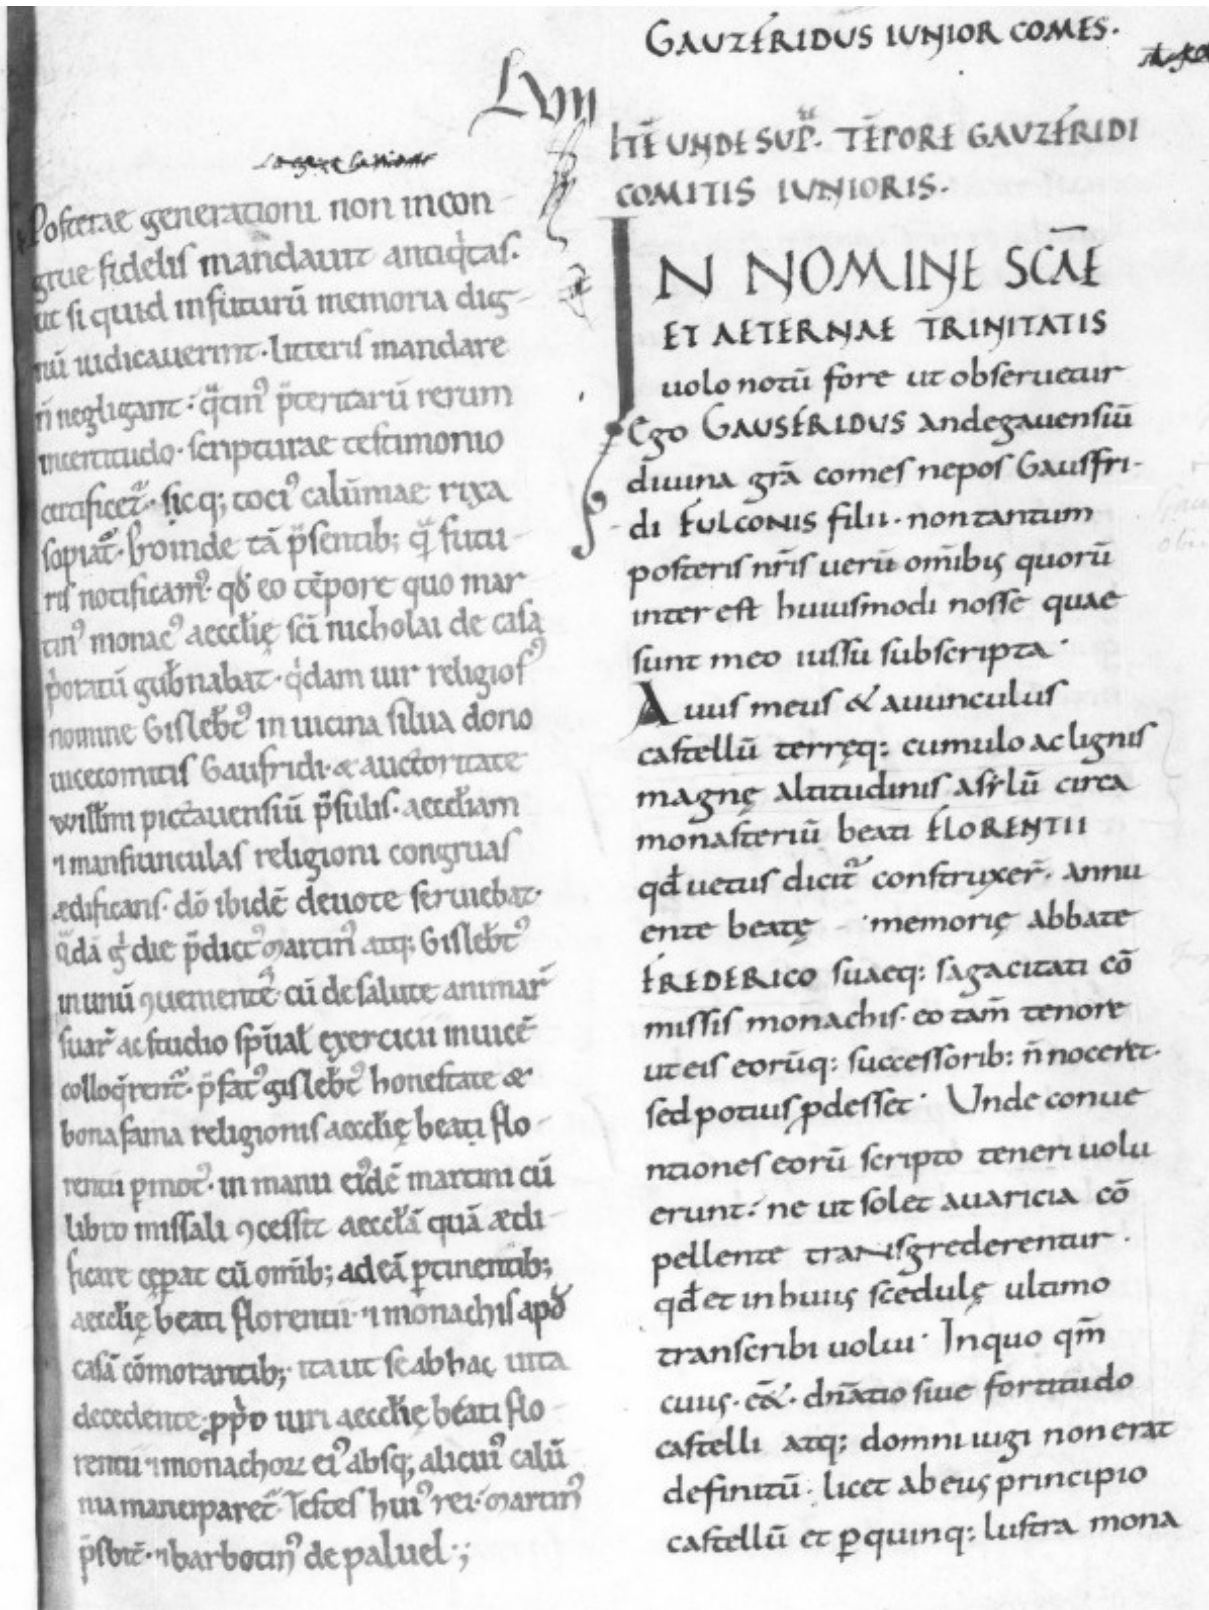 LVIII
Posterae generationi non incon-
grue fidelis mandauit antiq̇tas.
ut si quid in futurū memoria dig-
nū iudicauerint· litteris mandare
n̄ negligant· q̄tin⁹ p̄teritarū rerum
incertitudo· scripturae testimonio
certificet᷑· sicq; toci⁹ calūmae rixa
sopiat᷑· Proinde tā p̄sentib; q̄ futu-
ris notificam⁹· qđ eo tēpore quo mar-
tin⁹ monac⁹ aeccłię sc̄i nicholai de casa
p̓oratū gub̄nabat· q̓dam uir religios⁹
nomine Gisleb̄t⁹ in uicina silua dono
uicecomitis Gaufridi· & auctoritate
willmi pictauensiū p̄sulis· aeccłiam
⁊ mansiunculas religioni congruas
ædificans· dō ibidē deuote seruiebat·
q̄dā g̓ die p̄dict⁹ martin⁹ atq; Gisleb̄t⁹
in unū ꝯuenientes cū de salute animar᷑
suar᷑ ac studio sp̄ual exercicii inuicē
colloq̄rent᷑· p̄fat⁹ gisleb̄t⁹ honestate &
bona fama religionis aeccłię beati flo-
rentii ꝑmot⁹· in manu ei⁹dē martini cū
libro missali ꝯcessit aeccłā quā ædi-
ficare cęperat cū om̄ib; ad eā ꝑtinentib;
aeccłię beati florentii· ⁊ monachis apđ
casā cōmorantib; ita ut se ab hac uita
decedente· ꝓp̓o iuri aeccłię beati flo-
rentii ⁊ monachoꝝ ei⁹ absq; alicui⁹ calū
nia manciparet᷑· Testes hui⁹ rei· martin⁹
p̄sbit̄· ⁊ barbotin⁹ de paluel·;
GAUZFRIDUS IUNIOR COMES·
ITĒ UNDE SUP̄· TĒPORE GAUZFRIDI
COMITIS IUNIORIS·
IN NOMINE SC̄AE
ET AETERNAE TRINITATIS
uolo notū fore ut obseruetur
Ego GAUSFRIDUS andegauensiū
diuina gr̄a comes nepos Gausfri-
di FULCONIS filii· non tantum
posteris nr̄is uerū om̄ibus quorū
inter est huiusmodi nosse quae
sunt meo iussu subscripta·
Auus meus & auunculus
castellū terręq: cumulo ac lignis
magnę altitudinis asilū circa
monasteriū beati FLORENTII
qđ uetus dicit᷑ construxer̄· annu
ente beatę memorię abbate
FREDERICO suaeq: sagacitati cō
missis monachis· eo tam̄ tenore
ut eis eorūq: successorib: n̄ noceret·
sed potius ꝓdesset· Unde conue
ntiones eorū scripto teneri uolu
erunt· ne ut solet auaricia cō
pellente transgrederentur·
qđ et in huius scedulę ultimo
transcribi uolui· In quo qm̄
cuius· ēet· dn̄atio siue fortitudo
castelli atq; domniiugi non erat
definitū· licet ab eius principio
castellū et ꝑ quinq: lustra mona